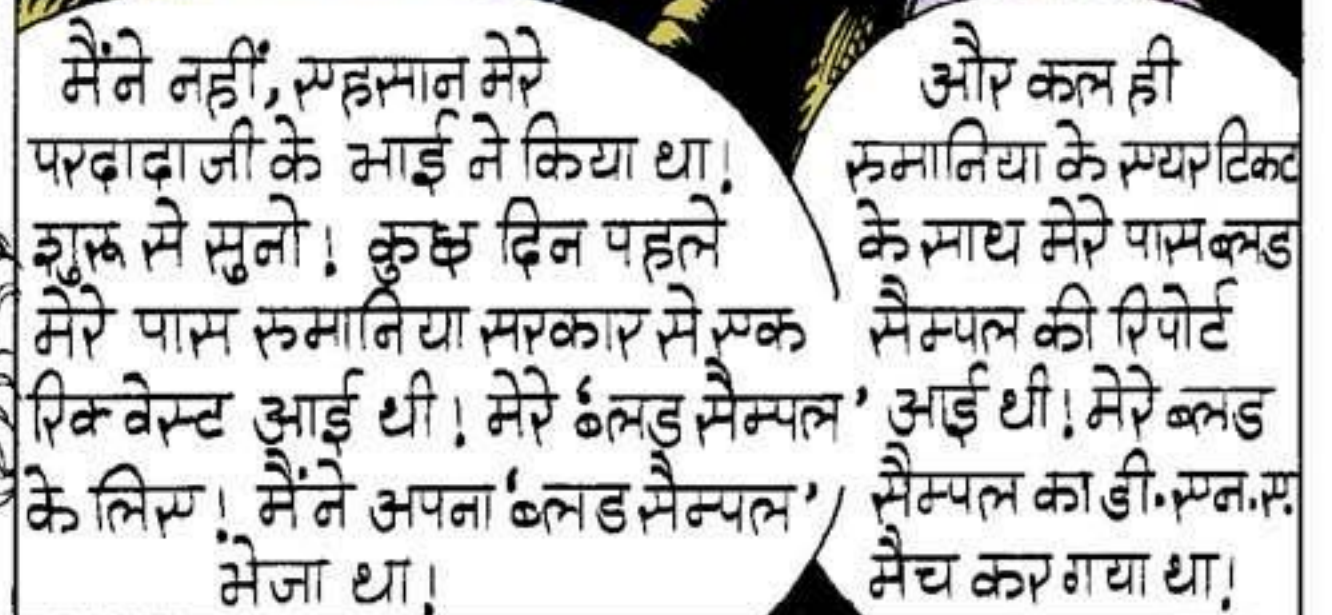 मैंने नहीं, एहसान मेरे
परदादाजी के भाई ने किया था!
शुरू से सुनो! कुछ दिन पहले
मेरे पास रुमानिया सरकार से एक
रिक्वेस्ट आई थी! मेरे 'ब्लड सैम्पल'
के लिए! मैंने अपना 'ब्लड सैम्पल'
भेजा था!
और कल ही
रुमानिया के एयरटिकट
के साथ मेरे पास ब्लड
सैम्पल की रिपोर्ट
आई थी! मेरे ब्लड
सैम्पल का डी.एन.ए.
मैच कर गया था!